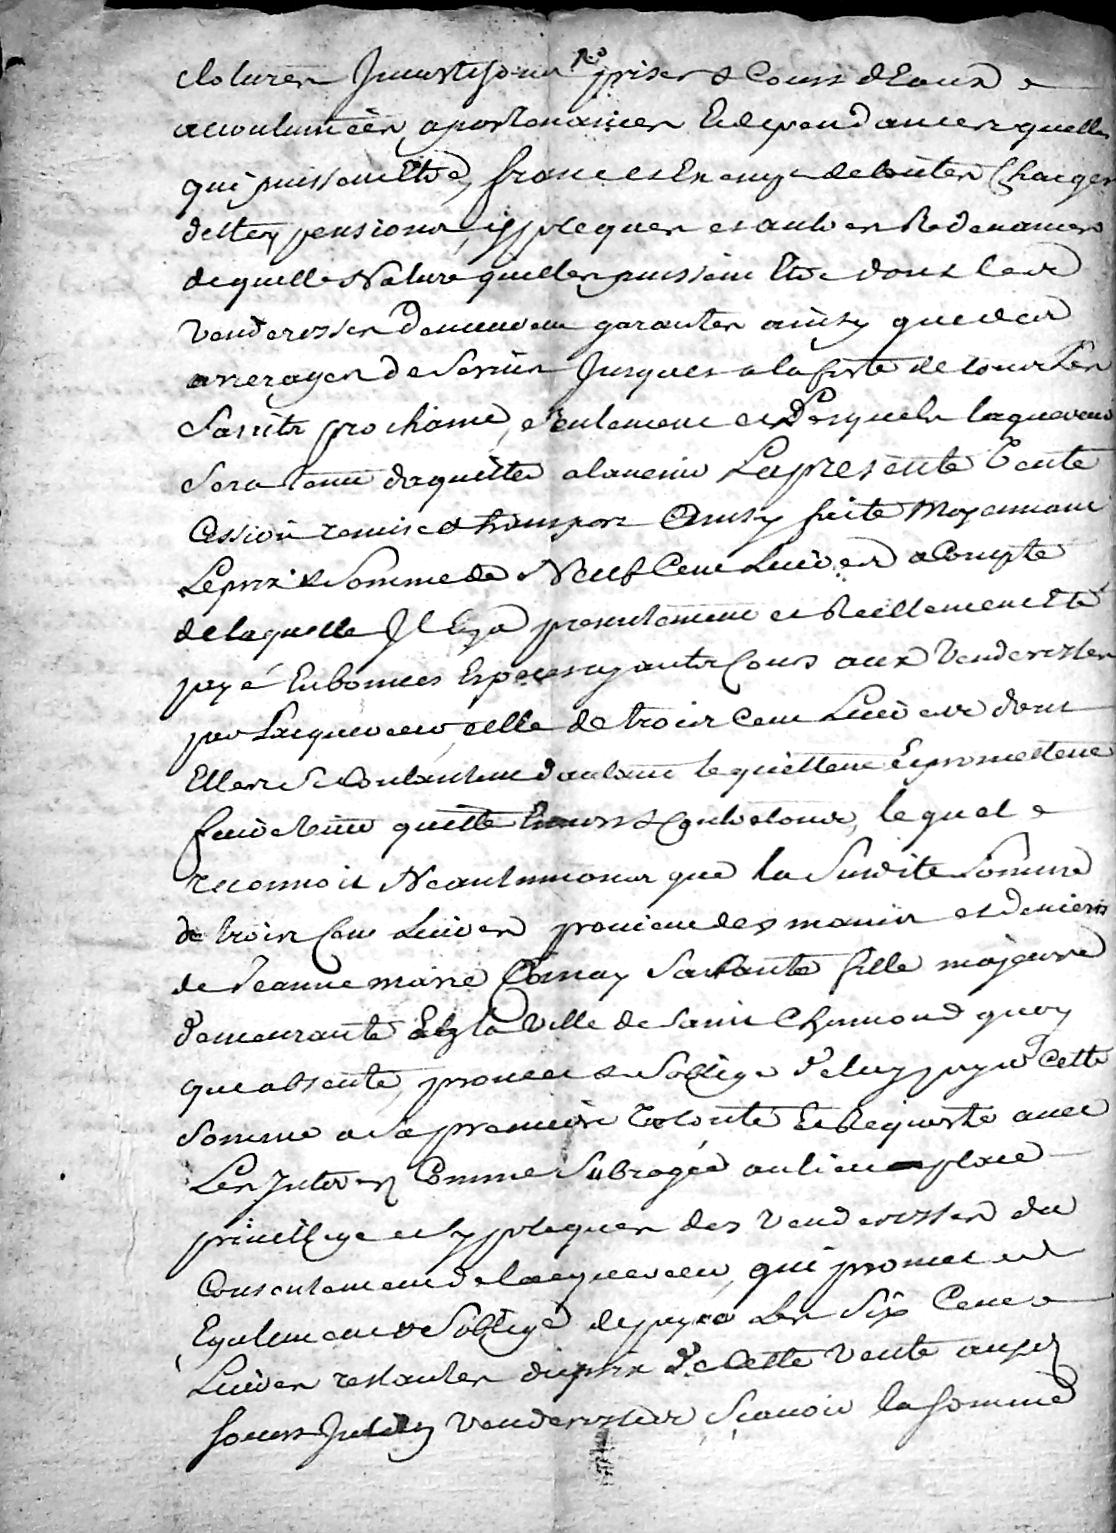 clotures Investisons prises & Cours dEaux
accoutumées, apartenances Et dependances quelles
qui puissent Etre, franches Exempt de toutes Charges
dettes, pensions, ypoteques et autres Redevances
de quelle Nature quelles puissent Etre dont les
Venderesses demeurent garantes ainsy que des
arrerages de servis Jusques a la feste de tous Les
Saints prochaine, seulement et desquels laquereur
sera tenu daquitter alavenir La presente Vente
Cession remise & transport Ainsy faite Moyennant
Le prix & Somme de Neuf Cent Livres a Compte
de laquelle Il Ly a presentement et Reellement Eté
payé En bonnes Especes ayants Cours aux Venderesses
par Lacquereur, celle de trois Cent Livres dont
Elles se Contantent dautant le quittent Et promettent
faire tenir quitte Envers & Contre tous, lequel
reconnoit Neantmoins que la Susdite Somme
de trois Cent Livres provient des mains et deniers
de Jeanne marie sa tante fille majeure
demeurante la Ville de Saint Chamond quoy
que absente, promet & Soblige de luy payer Cette
Somme a Sa premiere Volonté Et Requeste avec
Les Interets Comme Subrogée au lieu place
privilege et ypoteques des Venderesses du
Consentement de lacquereur, qui promet
Egalement & Soblige de payer Les Six Cent
Livres restantes du prix de Cette Vente auxd
soeurs Venderesses Sçavoir la somme